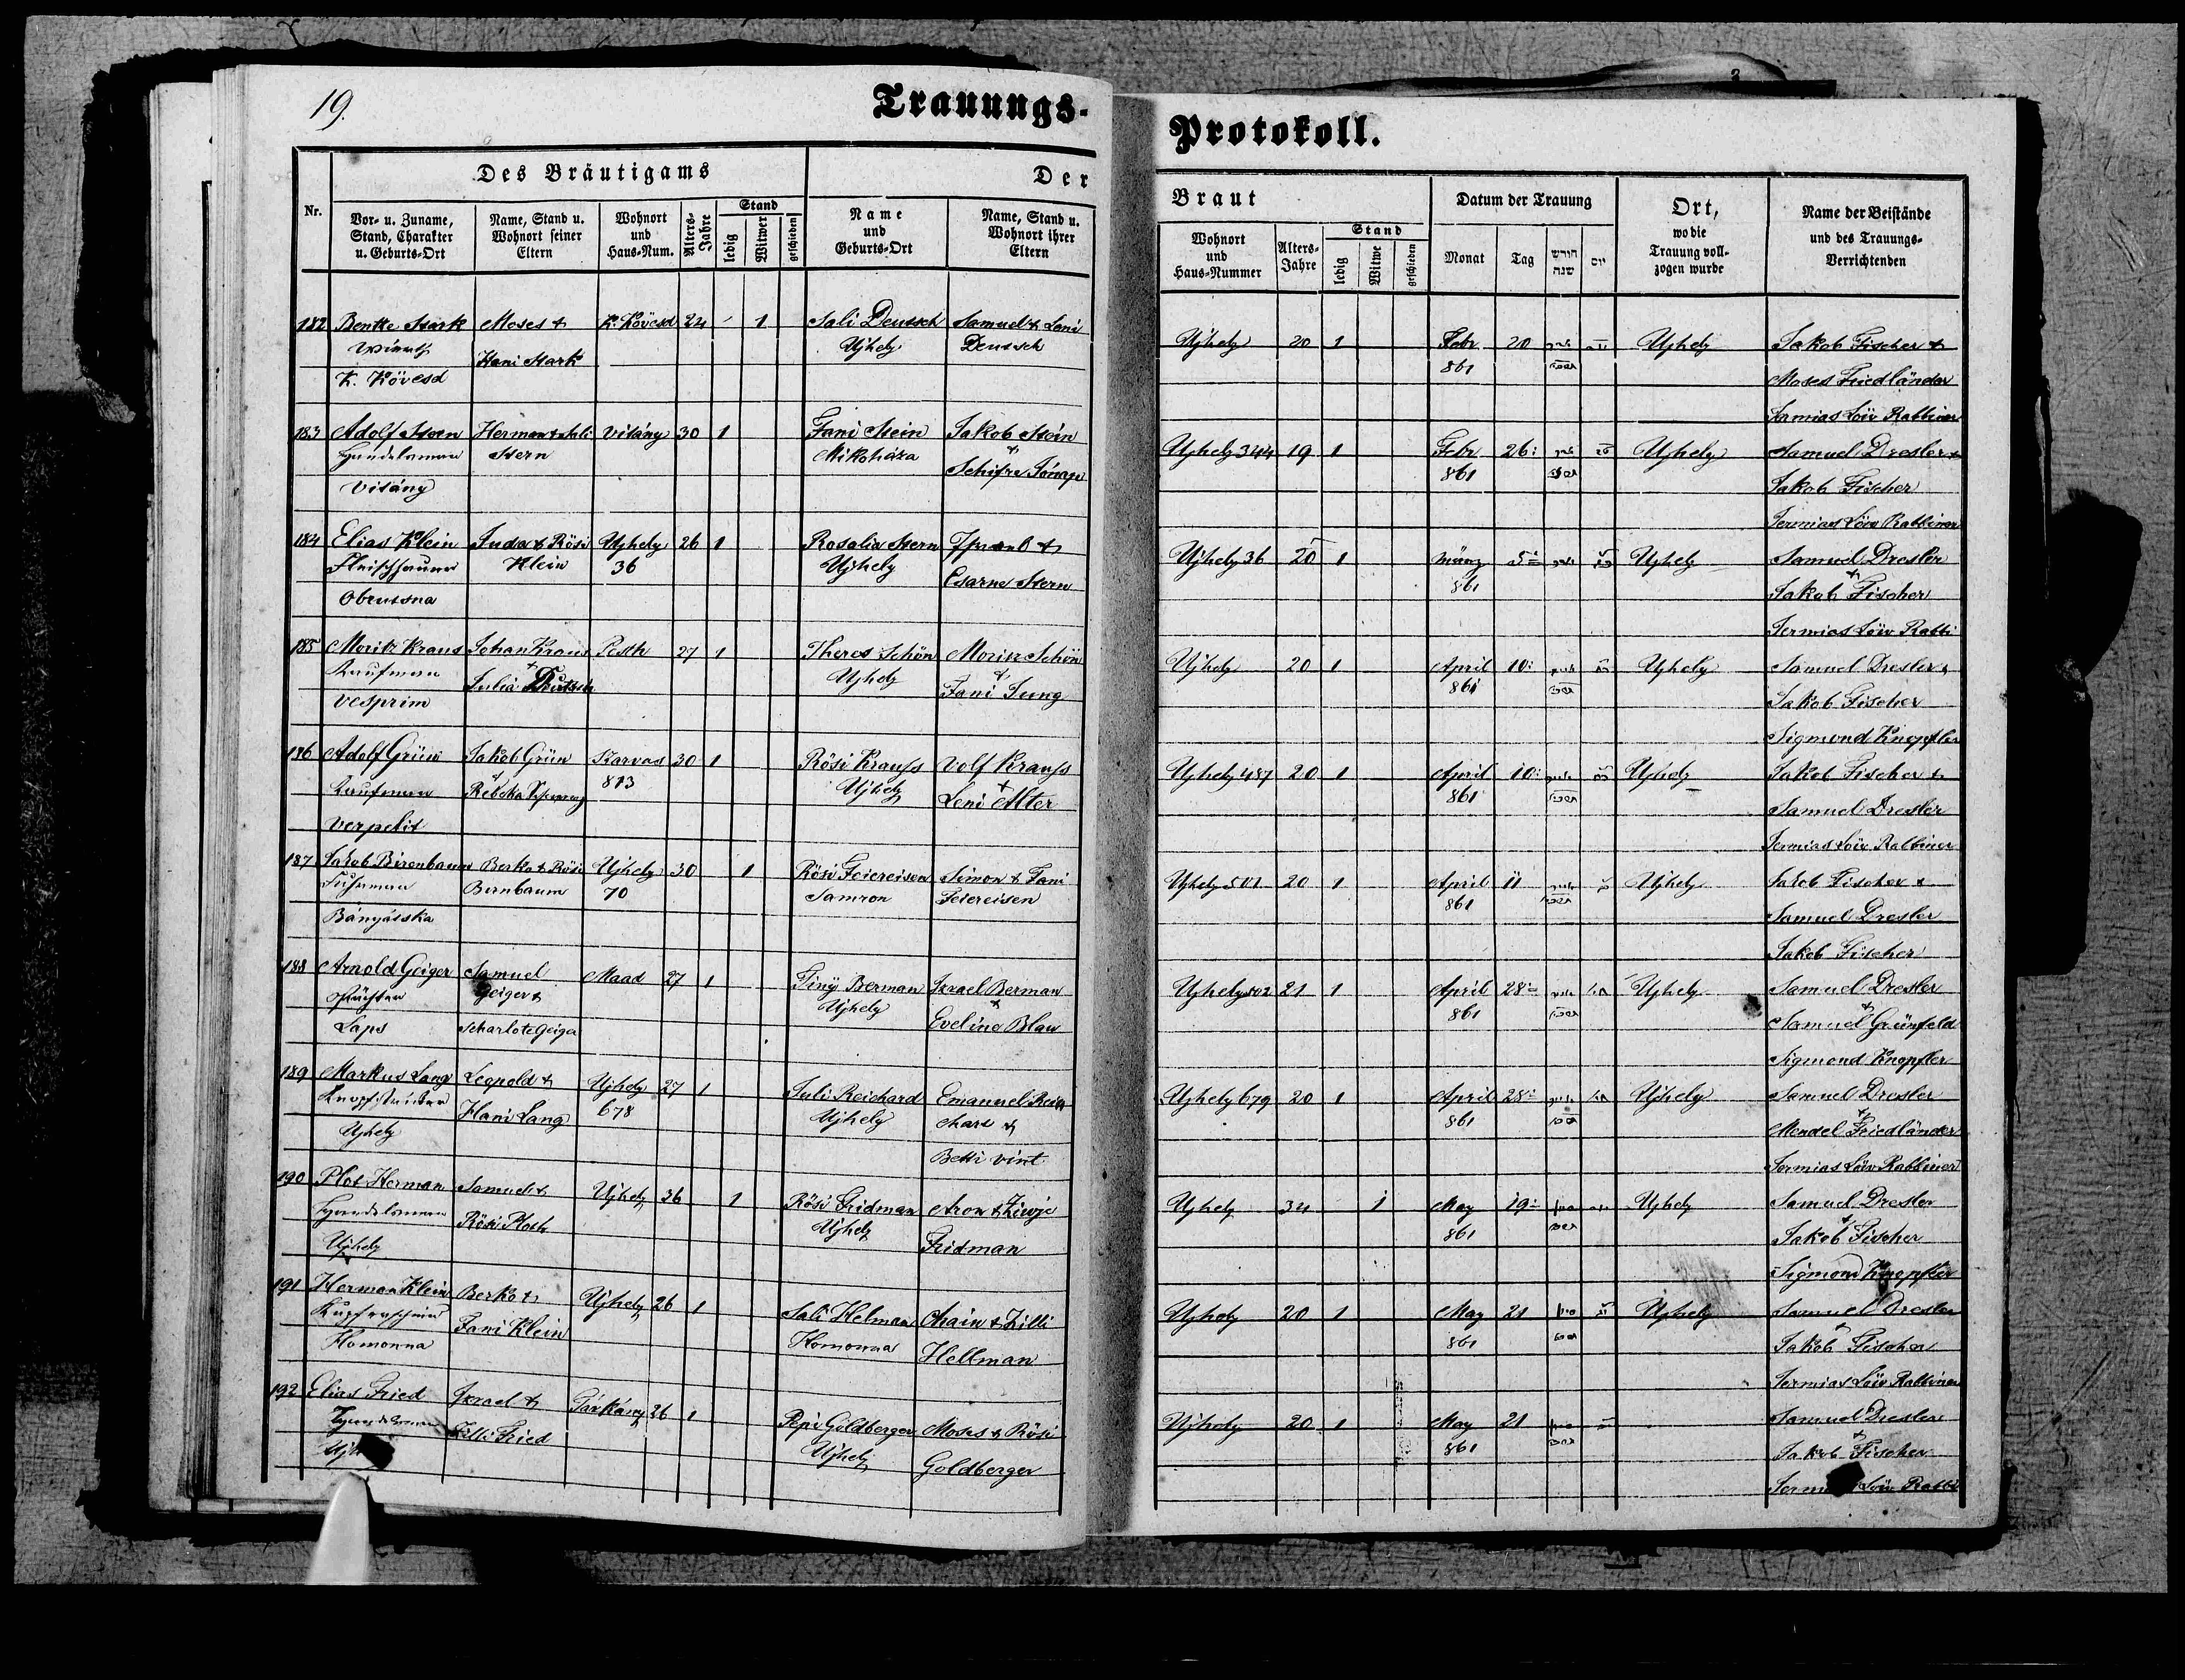 19.
Trauungs-
Protokoll.
Des Bräutigams
Der
Braut
Datum der Trauung
Ort,
wo die
Trauung voll-
zogen wurde
Name der Beistände
und des Trauungs-
Verrichtenden
Nr.
Vor- u. Zuname,
Stand, Charakter
u. Geburts-Ort
Name, Stand u.
Wohnort seiner
Eltern
Wohnort
und
Haus-Num.
Alters-
Jahre
Stand
ledig
Witwer
geschieden
Name
und
Geburts-Ort
Name, Stand u.
Wohnort ihrer
Eltern
Wohnort
und
Haus-Nummer
Alters-
Jahre
Stand
ledig
Witwe
geschieden
Monat
Tag
חודש
שנה
יום
182 Moses & K. Kövesd 24 1 Sali Deutsch Samuel & Lani
Ujhely Deutsch
Hani Stark
K. Kövesd
Ujhely 20 1 Febr 20 Ujhely Jakob Fischer &
861
Moses Friedländer
Löw Rabbiner
183 Adolf Stern Herman & Sali Vitány 30 1 Fani Stein Jakob Stein
Handelsman Stern Mikoháza &
Vitány Schifre
Ujhely 344 19 1 Febr 26 Ujhely Samuel Dresler &
861 Jakob Fischer
Jermias Löw Rabbiner
184 Elias Klein Juda & Rösi Ujhely 26 1 Rosalia Stern
Klein 36 Ujhely Stern
Ujhely 36 20 1 März 5 Ujhely Samuel Dresler
861 & Jakob Fischer
Jermias Löw Rabbi
185 Moritz Kraus Johan Kraus Pesth 27 1 Theres Schön Moritz Schön
Kaufman & Julia Ujhely & Fani Jung
Vesprim
Ujhely 20 1 April 10 Ujhely Samuel Dresler &
861 Jakob Fischer
Sigmond Knopfler
186 Adolf Grün Jakob Grün Szarvas 30 1 Rösi Krauss Volf Krauss
Kaufman & Rebeka 813 Ujhely & Leni Alter
Verpelit
Ujhely 487 20 1 April 10 Ujhely Jakob Fischer &
861 Samuel Dresler
Jermias Löw Rabbiner
187 Jakob Birenbaum Berko & Rösi Ujhely 30 1 Rösi Feiereisen Simon & Fani
Fuhrman Birnbaum 70 Feiereisen
Bányátska
Ujhely 501 20 1 April 11 Ujhely Jakob Fischer &
861 Samuel Dresler
Jakob Fischer
188 Arnold Geiger Samuel Maad 27 1 Berman Israel Berman
Geiger & Ujhely &
Scharlote Geiger Evelina Blau
Ujhely 502 21 1 April 28 Ujhely Samuel Dresler
861 & Samuel Grünfeld
Sigmond Knopfler
189 Markus Lang Leopold & Ujhely 27 1 Juli Reichard Emanuel
Hani Lang 678 Ujhely &
Ujhely Betti Vint
Ujhely 679 20 1 April 28 Ujhely Samuel Dresler
861 & Mendel Friedländer
Jermias Löw Rabbiner
190 Plot Herman Samuel & Ujhely 36 1 Rösi Fridman Aron &
Handelsman Rösi Ujhely Fridman
Ujhely
Ujhely 34 1 May 19 Ujhely Samuel Dresler
861 & Jakob Fischer
Sigmond Knopfler
191 Herman Klein Berko & Ujhely 26 1 Sali Helman Chain & Zilli
Fani Klein Homonna Hellman
Homonna
Ujhely 20 1 May 21 Ujhely Samuel Dresler
861 & Jakob Fischer
Jermias Löw Rabbiner
192 Elias Fried Israel & 26 1 Pepi Goldberger Moses & Rösi
Handelsman Zilli Fried Ujhely Goldberger
Ujhely 20 1 May 21 Samuel Dresler
861 & Jakob Fischer
Löw Rabbi